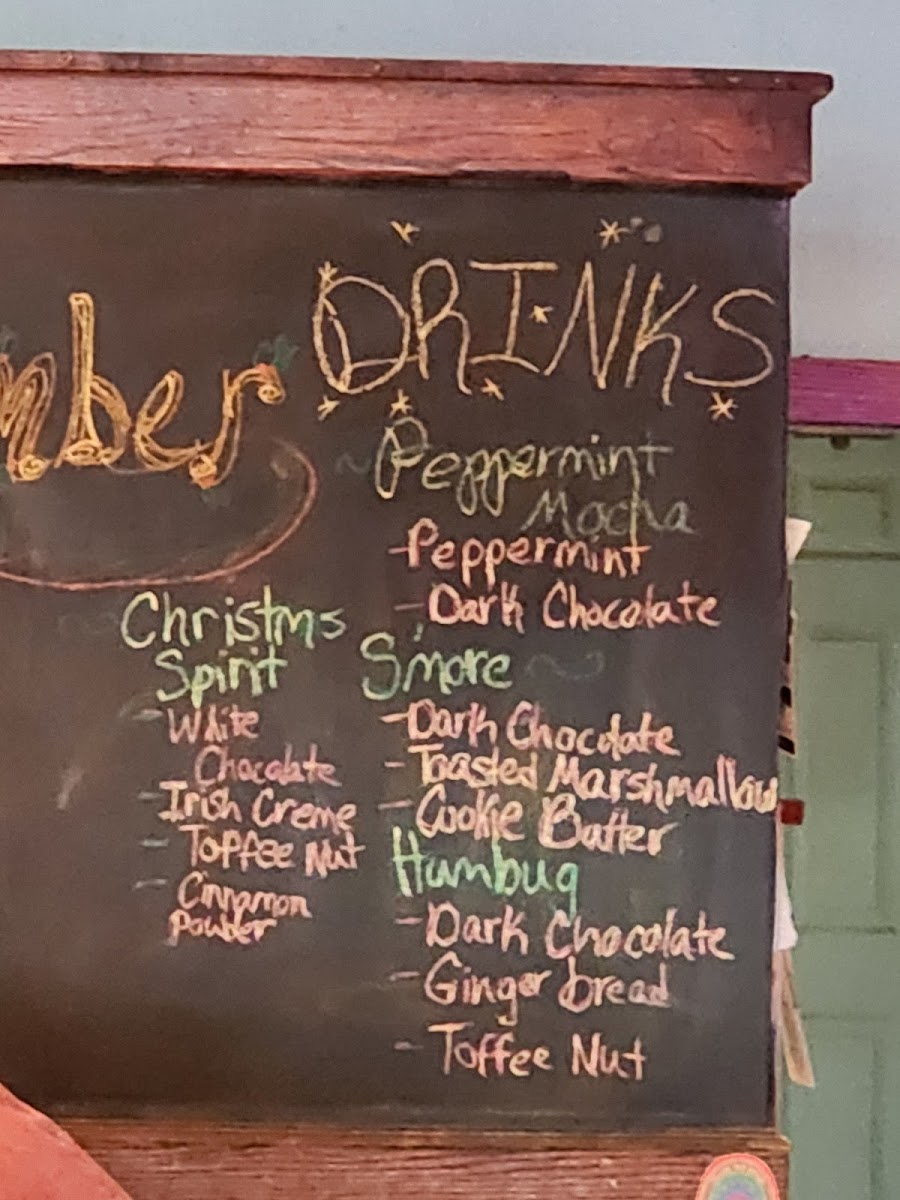 mber
DRINKS
Peppermint
Mocha
-Peppermint
-Dark Chocolate
Christms
Spirit
-White
Chocolate
-Irish Creme
-Toffee Nut
-Cinnamon
Powder
S'more
-Dark Chocolate
-Toasted Marshmallow
-Cookie Butter
Humbug
-Dark Chocolate
-Ginger bread
-Toffee Nut